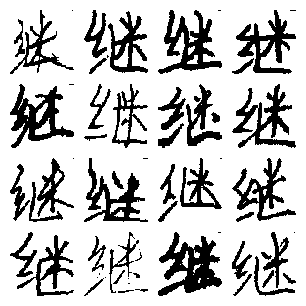 继继继继
继继继继
继继继继
继继继继